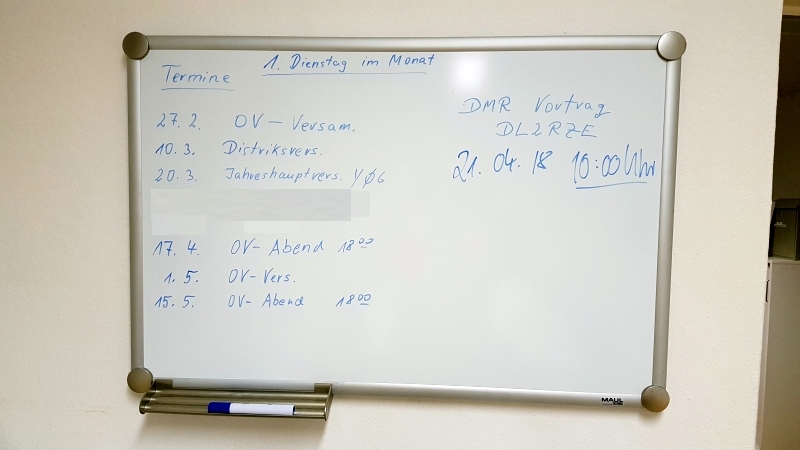 1. Dienstag im Monat
Termine
27. 2. OV - Versam.
10. 3. Distriksvers.
20. 3. Jahreshauptvers. YØ6
17. 4. OV- Abend 18⁰⁰
1. 5. OV- Vers.
15. 5. OV- Abend 18⁰⁰
DMR Vortrag
DL2RZE
21. 04. 18 10:00 Uhr
MAUL